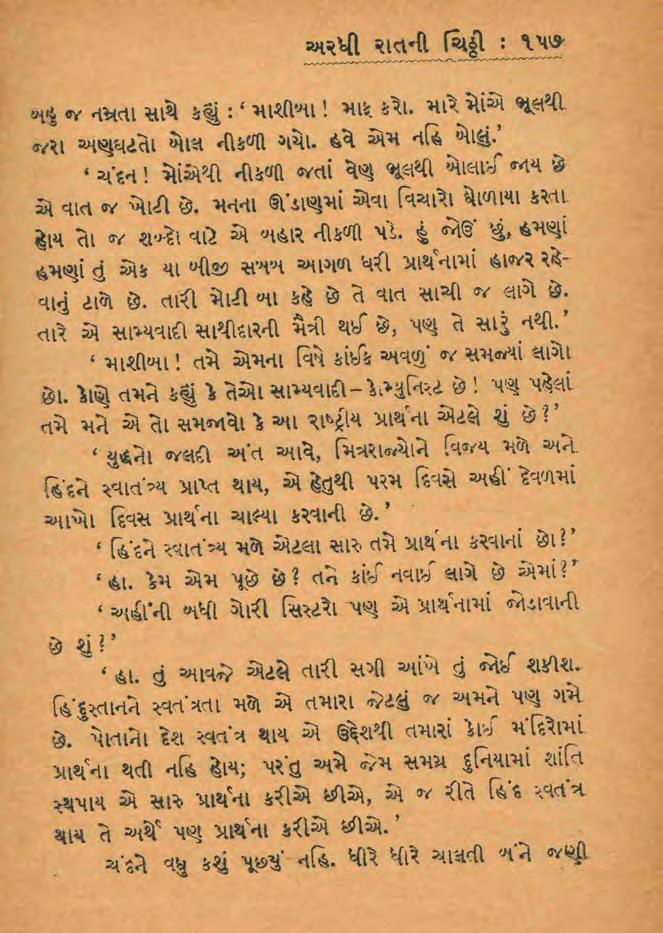 અરધી રાતની ચિઠ્ઠી : ૧૫૭
બહુ જ નમ્રતા સાથે કહ્યું : ‘ માશીબા ! માફ કરો. મારે મોંએ ભૂલથી
જરા અણઘટતો બોલ નીકળી ગયો. હવે એમ નહિ બોલું.’
‘ ચંદન ! મોંએથી નીકળી જતાં વેણ ભૂલથી બોલાઈ જાય છે
એ વાત જ ખોટી છે. મનના ઊંડાણમાં એવા વિચારો ઘોળાયા કરતા
હોય તો જ શબ્દો વાટે એ બહાર નીકળી પડે. હું જોઉં છું, હમણાં
હમણાં તું એક યા બીજી સબબ આગળ ધરી પ્રાર્થનામાં હાજર રહે-
વાનું ટાળે છે. તારી મોટી બા કહે છે તે વાત સાચી જ લાગે છે.
તારે એ સામ્યવાદી સાથીદારની મૈત્રી થઈ છે, પણ તે સારું નથી.’
‘ માશીબા ! તમે એમના વિષે કાંઈક અવળું જ સમજ્યાં લાગો
છો. કોણે તમને કહ્યું કે તેઓ સામ્યવાદી – કોમ્યુનિસ્ટ છે ! પણ પહેલાં
તમે મને એ તો સમજાવો કે આ રાષ્ટ્રીય પ્રાર્થના એટલે શું છે ?’
‘ યુદ્ધનો જલદી અંત આવે, મિત્રરાજ્યોને વિજય મળે અને
હિંદને સ્વાતંત્ર્ય પ્રાપ્ત થાય, એ હેતુથી પરમ દિવસે અહીં દેવળમાં
આખો દિવસ પ્રાર્થના ચાલ્યા કરવાની છે.’
‘ હિંદને સ્વાતંત્ર્ય મળે એટલા સારુ તમે પ્રાર્થના કરવાનાં છો ?’
‘ હા. કેમ એમ પૂછે છે ? તને કાંઈ નવાઈ લાગે છે એમાં ?’
‘ અહીંની બધી ગોરી સિસ્ટરો પણ એ પ્રાર્થનામાં જોડાવાની
છે શું ?’
‘ હા. તું આવજે એટલે તારી સગી આંખે તું જોઈ શકીશ.
હિંદુસ્તાનને સ્વતંત્રતા મળે એ તમારા જેટલું જ અમને પણ ગમે
છે. પોતાનો દેશ સ્વતંત્ર થાય એ ઉદ્દેશથી તમારાં કોઈ મંદિરોમાં
પ્રાર્થના થતી નહિ હોય; પરંતુ અમે જેમ સમગ્ર દુનિયામાં શાંતિ
સ્થપાય એ સારુ પ્રાર્થના કરીએ છીએ, એ જ રીતે હિંદ સ્વતંત્ર
થાય તે અર્થે પણ પ્રાર્થના કરીએ છીએ.’
ચંદને વધુ કશું પૂછયું નહિ. ધીરે ધીરે ચાલતી બંને જણી